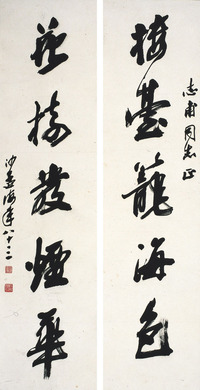 志甫同志正
樓臺籠海色
草樹發煙華
沙孟海年八十三